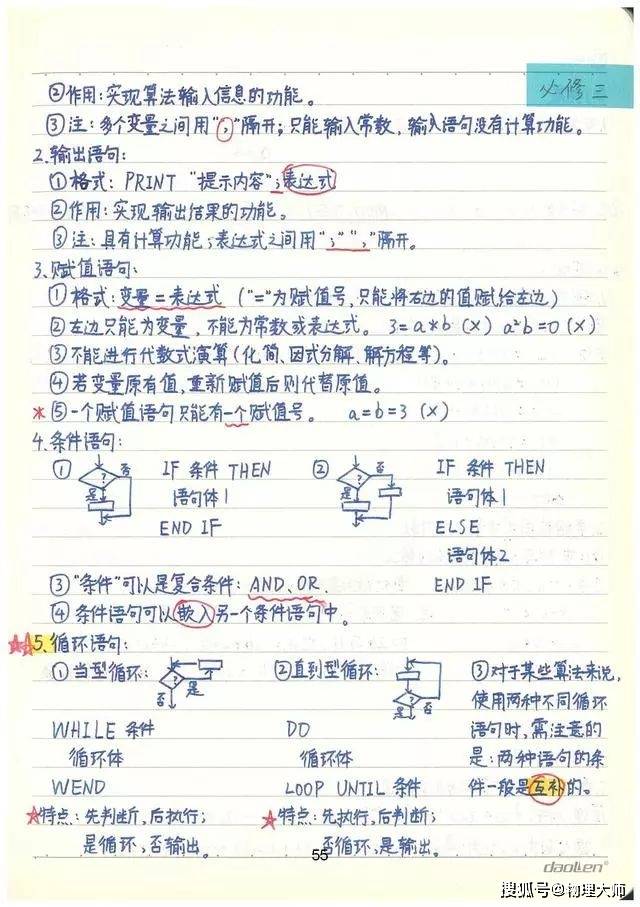 必修三
②作用:实现算法输入信息的功能。
③注:多个变量之间用","隔开;只能输入常数,输入语句没有计算功能。
2.输出语句:
①格式: PRINT "提示内容";表达式
②作用:实现输出结果的功能。
③注:具有计算功能;表达式之间用";"","隔开。
3.赋值语句:
①格式:变量=表达式 ("="为赋值号,只能将右边的值赋给左边)
②左边只能为变量,不能为常数或表达式。 3=a*b (×) a²b=0 (×)
③不能进行代数式演算(化简、因式分解、解方程等)。
④若变量原有值,重新赋值后则代替原值。
*⑤一个赋值语句只能有一个赋值号。 a=b=3 (×)
4.条件语句:
① ? 是 否 IF 条件 THEN ② ? 是 否 IF 条件 THEN
语句体1 语句体1
END IF ELSE
语句体2
③"条件"可以是复合条件: AND、OR. END IF
④条件语句可以嵌入另一个条件语句中。
☆☆5.循环语句:
①当型循环: ? 是 否 ②直到型循环: ? 是 否 ③对于某些算法来说,
使用两种不同循环
WHILE 条件 DO 语句时,需注意的
循环体 循环体 是:两种语句的条
WEND LOOP UNTIL 条件 件一般是互补的。
☆特点:先判断,后执行; ☆特点:先执行,后判断;
是循环,否输出。 否循环,是输出。
55
daolen®
搜狐号@物理大师